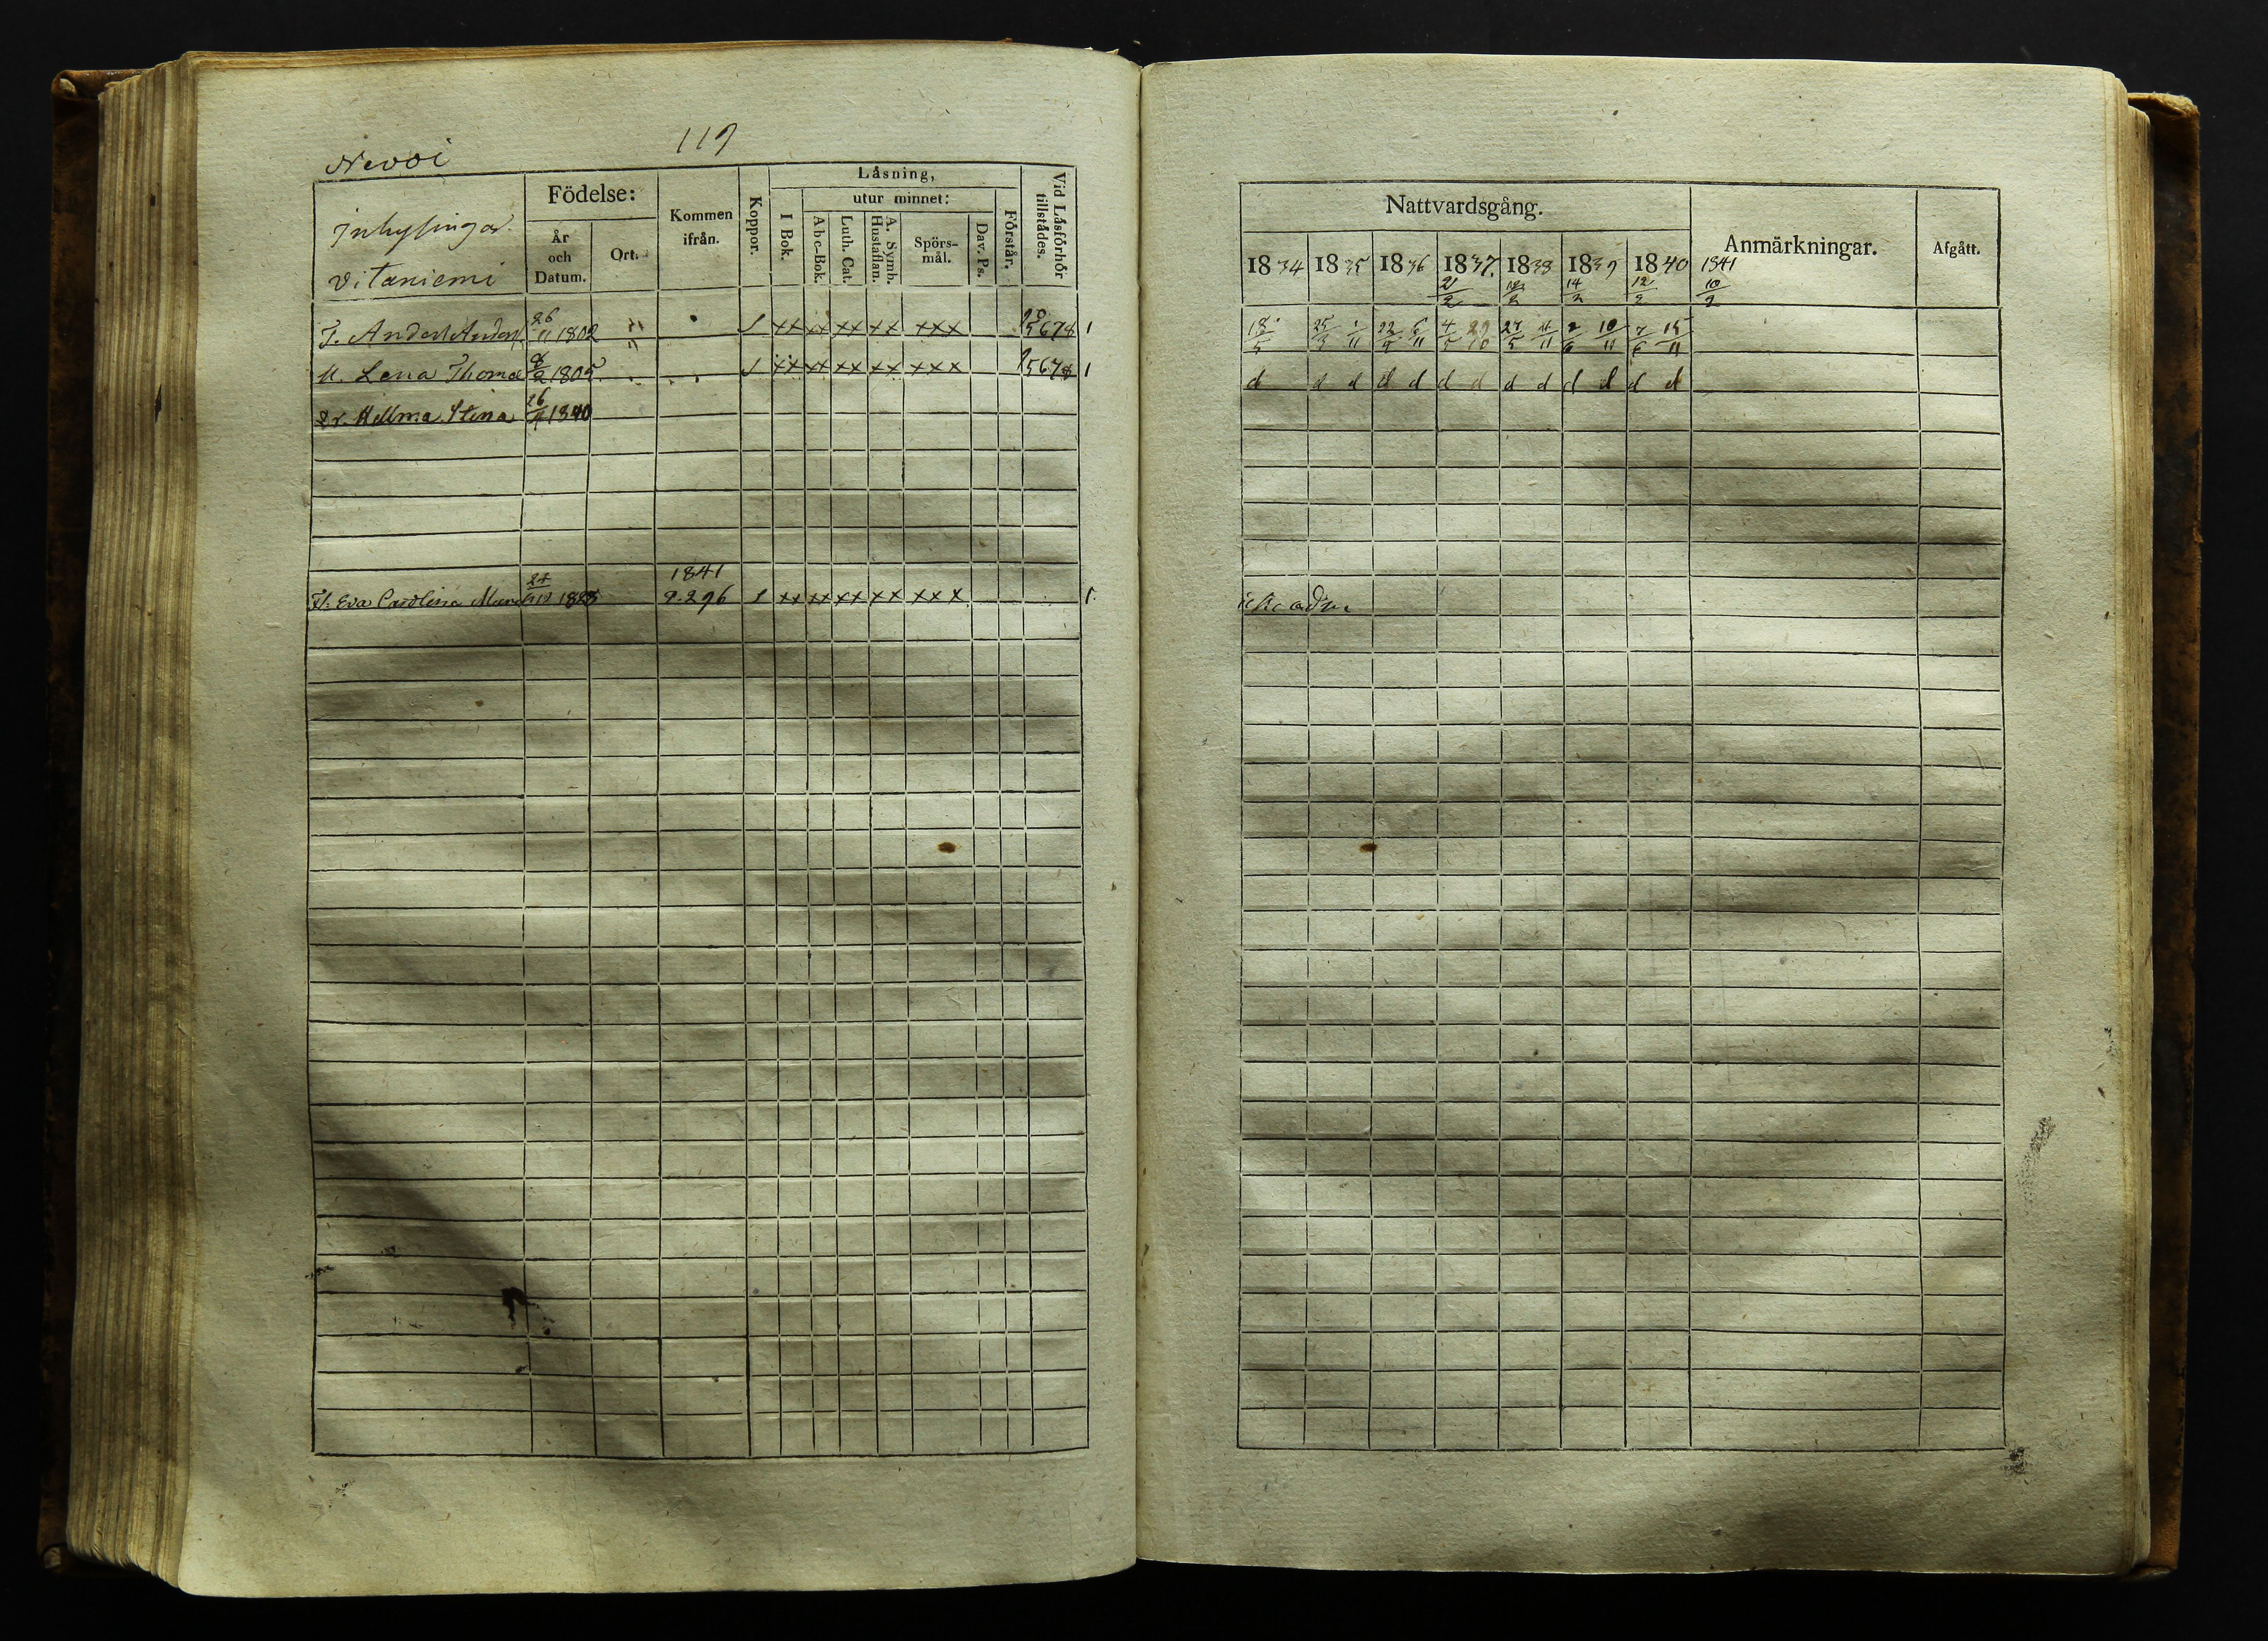 Nevoi
119
Inhysingar.
Vitaniemi
Födelse:
År och Datum.
Ort.
Kommen ifrån.
Koppor.
Läsning,
utur minnet:
I Bok.
Abc-Bok.
Luth. Cat.
A. Symb. Hustaflan.
Spörs-mål.
Dav. Ps.
Förstår.
Vid Läsförhör tillstädes.
I. Anders Anderss. 26/11 1802 s xx xx xx xx xxx 5678 1
M. Lena Thomæ 8/2 1805 s xx xx xx xx xxx 5678 1
Dr. Hellma Stina 26/4 1840
1841
Fl. Eva Carolina p. 296 s xx xx xx xx xxx 1.
Nattvardsgång.
Anmärkningar.
Afgått.
1834 1835 1836 1837. 1838 1839 1840 1841
2/2 14/2 12/2 10/2
18/5 25/5 1/11 22/5 6/11 4/5 29/10 27/5 11/11 2/6 10/11 7/6 15/11
d d d d d d d d d d d d d